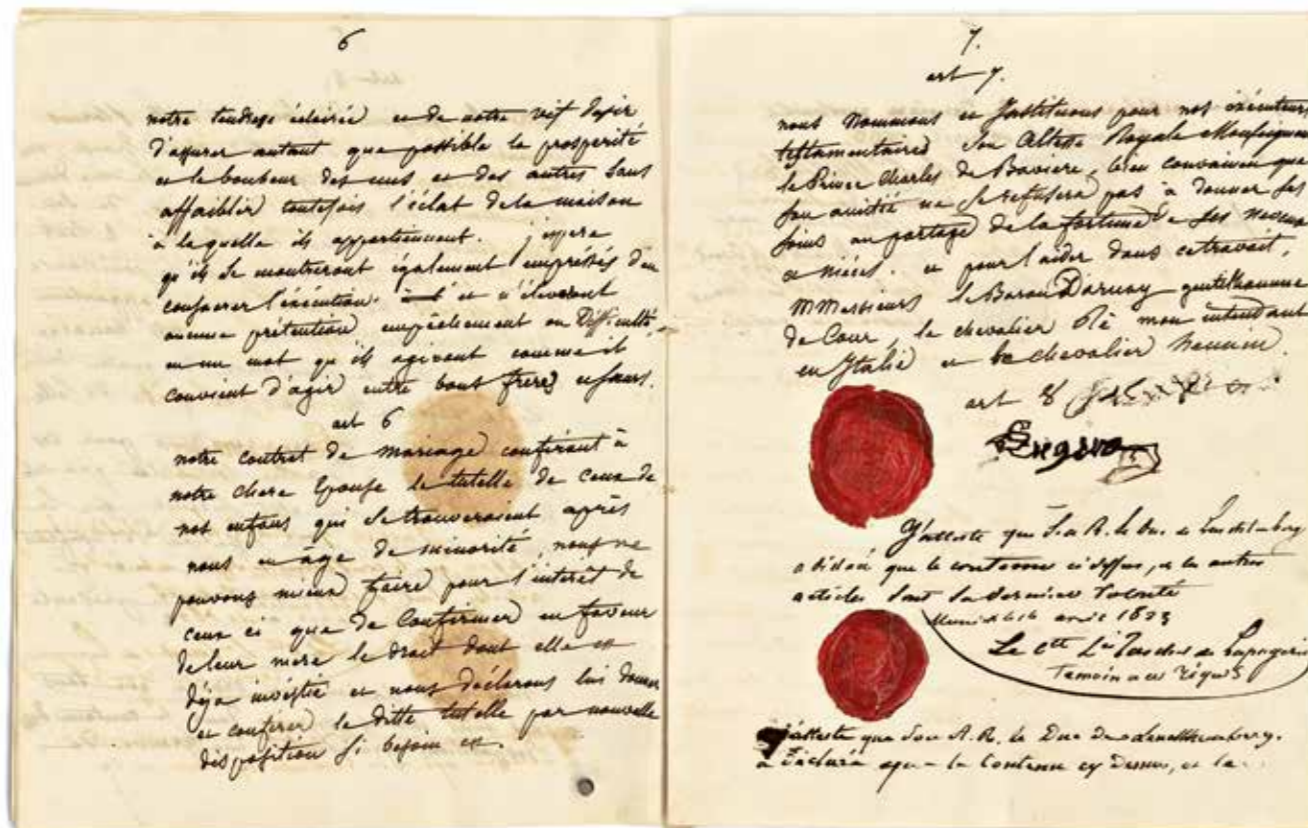 6
notre tendresse éclairée et de notre vif desir
d'assurer autant que possible la prosperité
et le bonheur des uns et des autres sans
affaiblir toutefois l'éclat de la maison
à laquelle ils appartiennent. j'espere
qu'ils se montreront également empressés d'en
consacrer l'éxécution. et n'éleveront
aucune prétention, empêchement ou Difficulté,
en un mot qu'ils agiront comme il
convient d'agir entre bons freres et sœurs.
art 6
notre contrat de mariage conférant à
notre chere Epouse la tutelle de ceux de
nos enfans qui se trouveraient après
nous en âge de minorité, nous ne
pouvons mieux faire pour l'intérêt de
ceux ci que de Confirmer en faveur
de leur mere le droit dont elle est
déja invéstie et nous déclarons lui donner
et conferer la ditte tutelle par nouvelle
disposition si besoin est.
7.
art 7.
nous Nommons et Instituons pour nos éxécuteurs
testamentaires Son Altesse Royale Monseigneur
le Prince Charles de Baviere, bien convaincu que
son amitié ne se refusera pas à donner ses
soins au partage de la fortune de ses neveux
et niéces. et pour l'aider dans ce travail,
MMessieurs le Baron Darnay gentilhomme
de Cour, le chevalier Rè mon intendant
en Italie et le chevalier hennin.
art 8
Eugene
J'atteste que S. A. R. le Duc de Leuchtenberg
a déclaré que le contenu ci dessus, et les autres
articles sont sa derniere volonté
Munich le avril 1823
Le Cte Tascher de Lapagerie
Temoin a ce réquis
J'atteste que Son A. R. le Duc de Leuchtenberg.
a Déclaré que le Contenu cy Dessus, et les